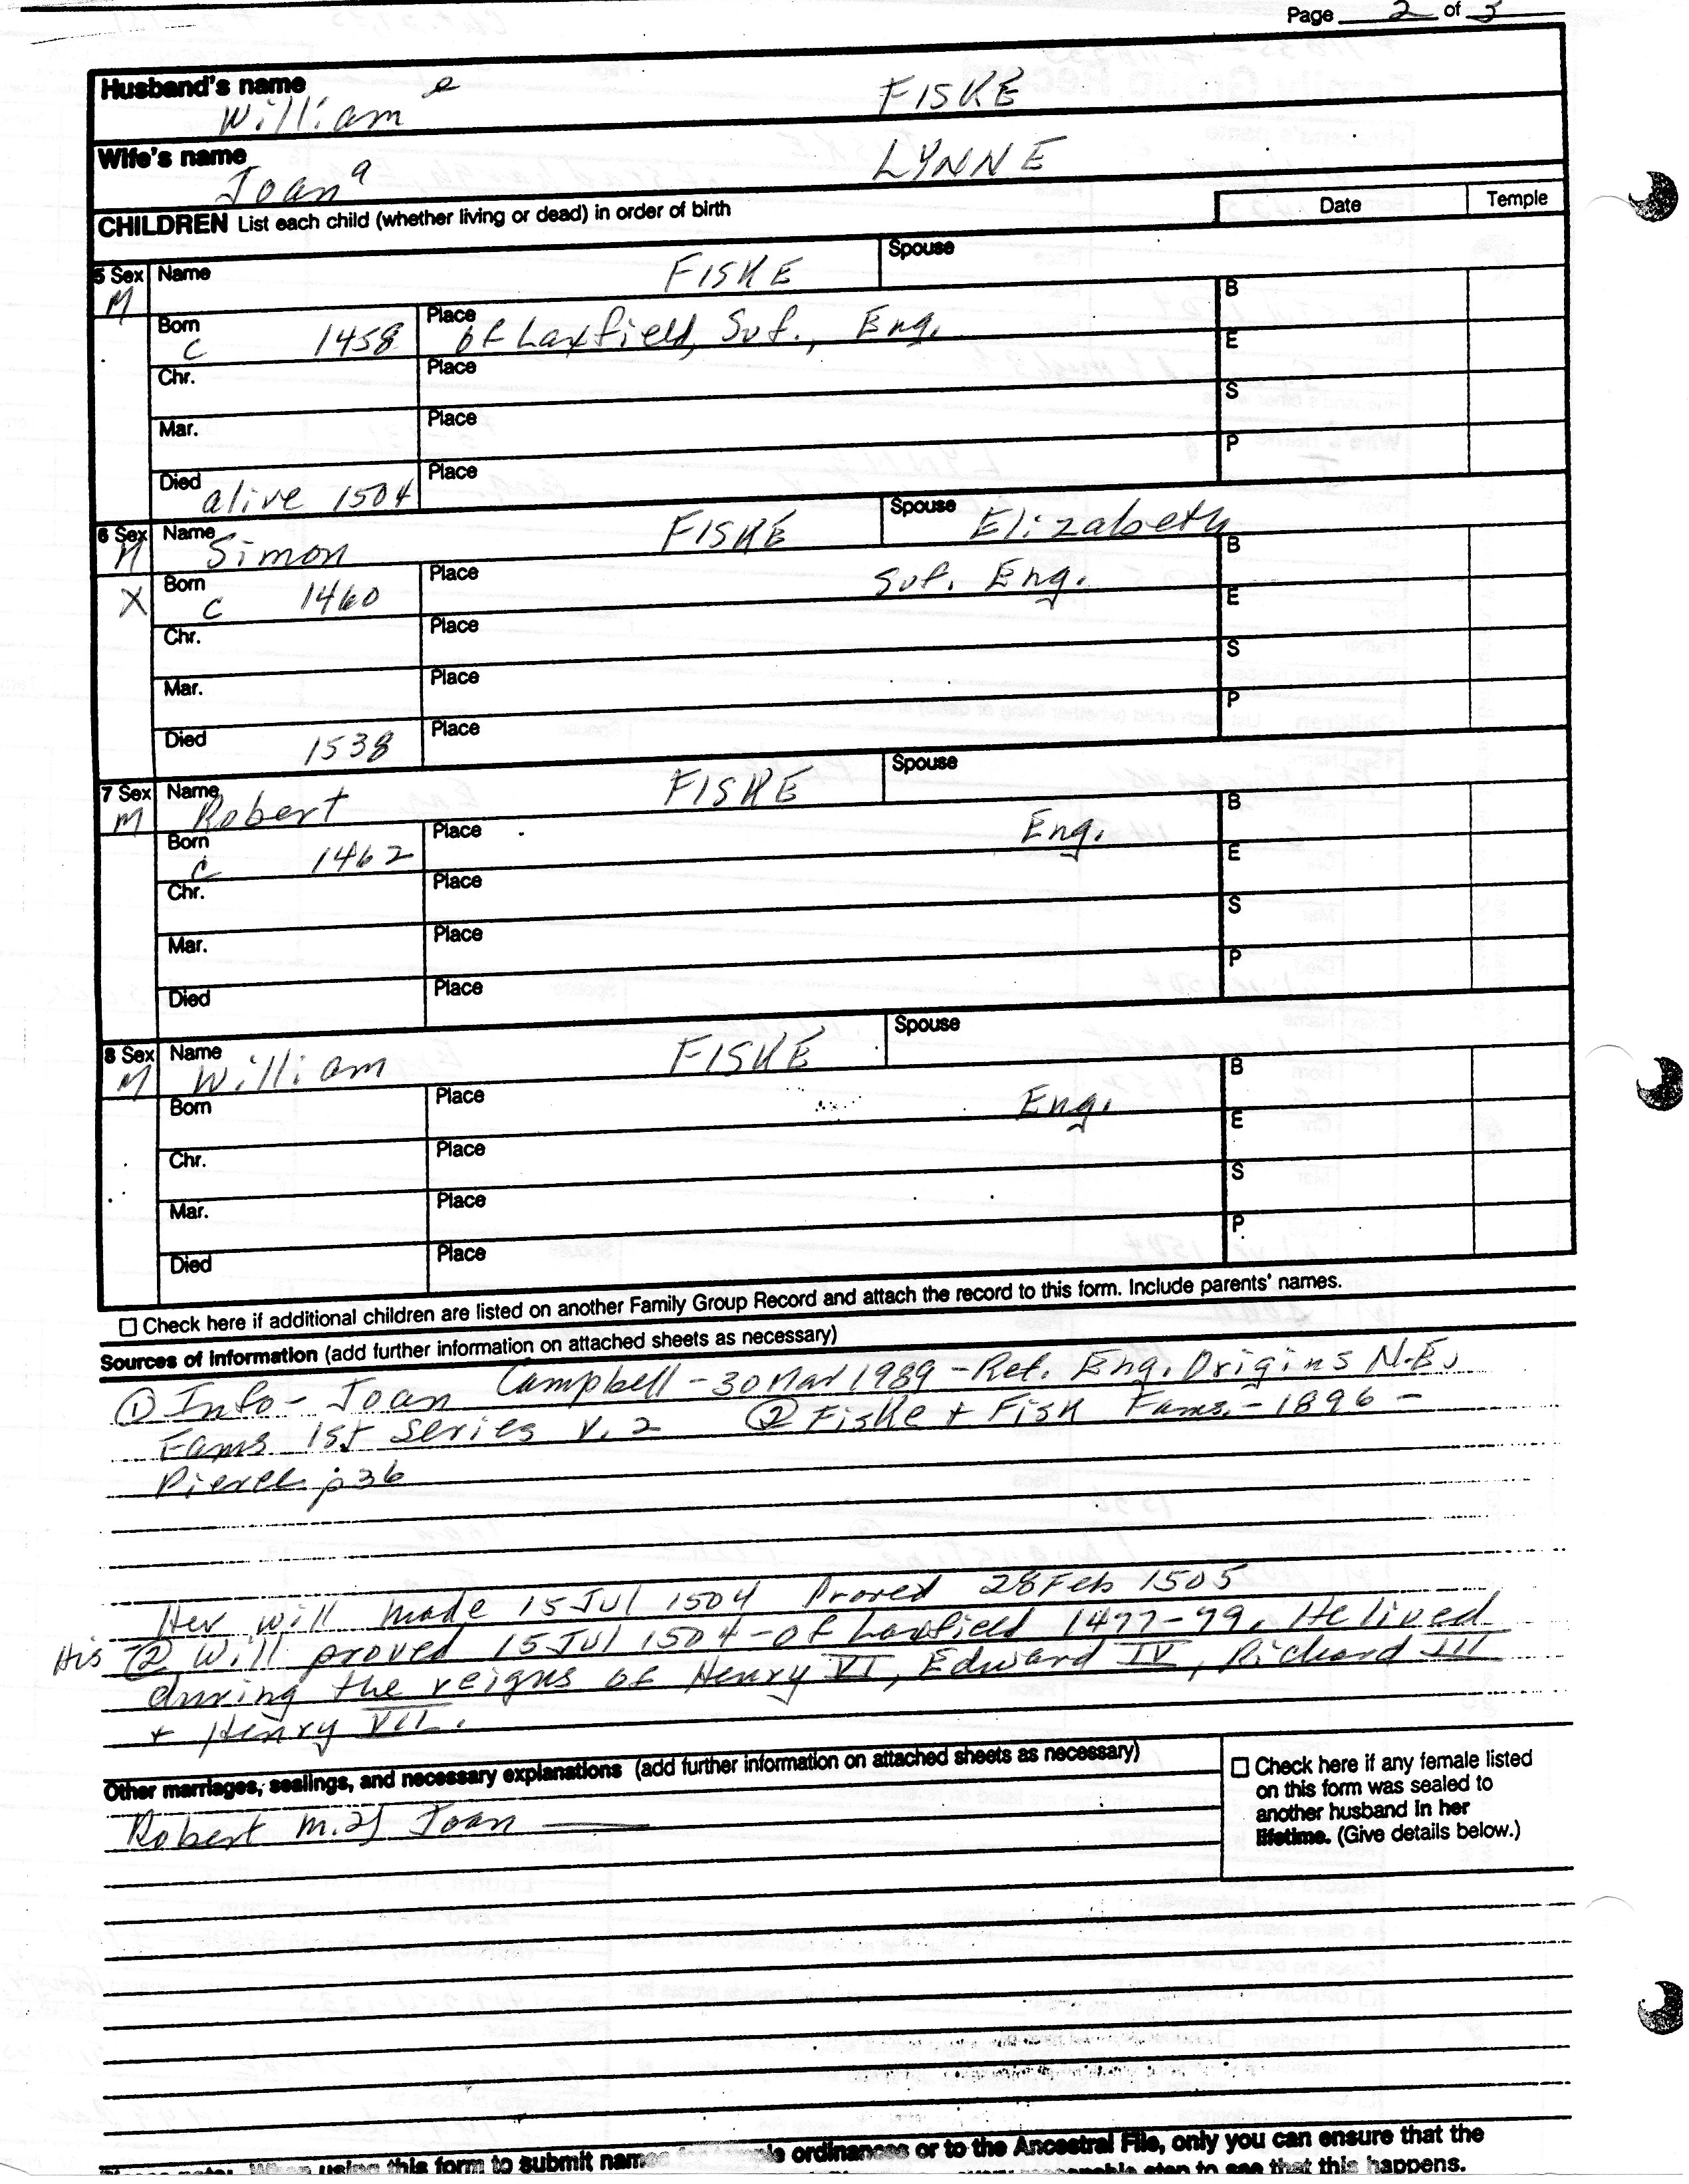 Page 2 of 3
Husband's name
William e FISKE
Wife's name
Joan a LYNNE
CHILDREN List each child (whether living or dead) in order of birth Date Temple
5 Sex Name FISKE Spouse
M B
Born c 1458 Place of Laxfield, Suf., Eng.
E
Chr. Place
S
Mar. Place
P
Died alive 1504 Place
6 Sex Name Simon FISKE Spouse Elizabeth
M B
X Born c 1460 Place Suf. Eng.
E
Chr. Place
S
Mar. Place
P
Died 1538 Place
7 Sex Name Robert FISKE Spouse
M B
Born c 1462 Place Eng.
E
Chr. Place
S
Mar. Place
P
Died Place
8 Sex Name William FISKE Spouse
M B
Born Place Eng.
E
Chr. Place
S
Mar. Place
P
Died Place
☐ Check here if additional children are listed on another Family Group Record and attach the record to this form. Include parents' names.
Sources of information (add further information on attached sheets as necessary)
① Info - Joan Campbell - 30 Mar 1989 - Ref. Eng. Origins N.E.
Fams 1st Series V. 2 ② Fiske + Fisk Fams. - 1896 -
Pierce p 36
Her will made 15 Jul 1504 Proved 28 Feb 1505
His ② Will proved 15 Jul 1504 - of Laxfield 1477-99. He lived
during the reigns of Henry VI, Edward IV, Richard III
+ Henry VII.
Other marriages, sealings, and necessary explanations (add further information on attached sheets as necessary)
Robert m. 2) Joan
☐ Check here if any female listed
on this form was sealed to
another husband in her
lifetime. (Give details below.)
using this form to submit names ordinances or to the Ancestral File, only you can ensure that the
step to see that this happens.